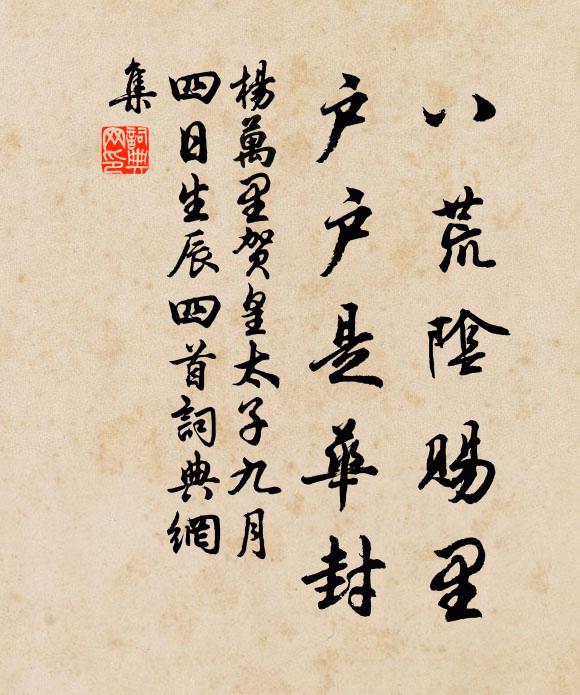 八荒陰賜里
户户是華封
楊萬里賀皇太子九月
四日生辰四首詞典網
集
詞典
网印